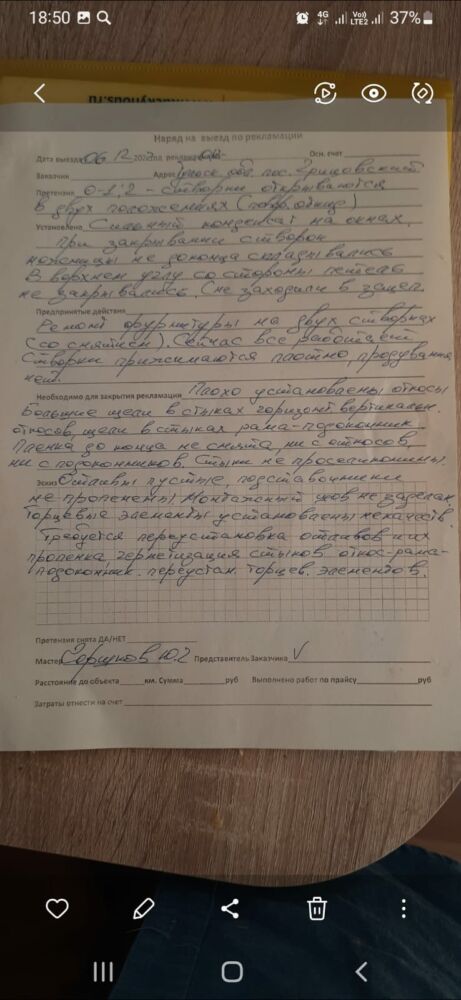 18:50
4G
Vo))
LTE2
37%
Наряд на выезд по рекламации
Дата выезда 06.12.202 рекламац Осн. счет
Заказчик Адрес обл. пос.
Претензия 0-1,2 - створки открываются
в двух положениях (повор. откид)
Установлено Сильный конденсат на окнах.
при закрывании створок
ножницы не доконца складывались
В верхнем углу со стороны петель
не закрывались (не заходили в зацеп.
Предпринятые действия
Ремонт фурнитуры на двух створках
(со снятием). Сейчас все работает
Створки прижимаются плотно, продувания
нет.
Необходимо для закрытия рекламации Плохо установлены откосы
Большие щели в стыках горизонт вертикальн.
откосов, щели в стыках рама-подоконник.
Пленка до конца не снята, ни с откосов,
ни с подоконников. Стыки не просиликонины.
Эскиз Отливы пустые, подставочники
не пропенены Монтажный шов не заделан
Торцевые элементы установлены некачеств.
Требуется переустановка отливов и их
пропенка, герметизация стыков откос-рама-
подоконник. переустан. торцев. элементов.
Претензия снята ДА/НЕТ
Мастер Представитель Заказчика V
Расстояние до объекта км. Сумма руб Выполнено работ по прайсу руб
Затраты отнести на счет